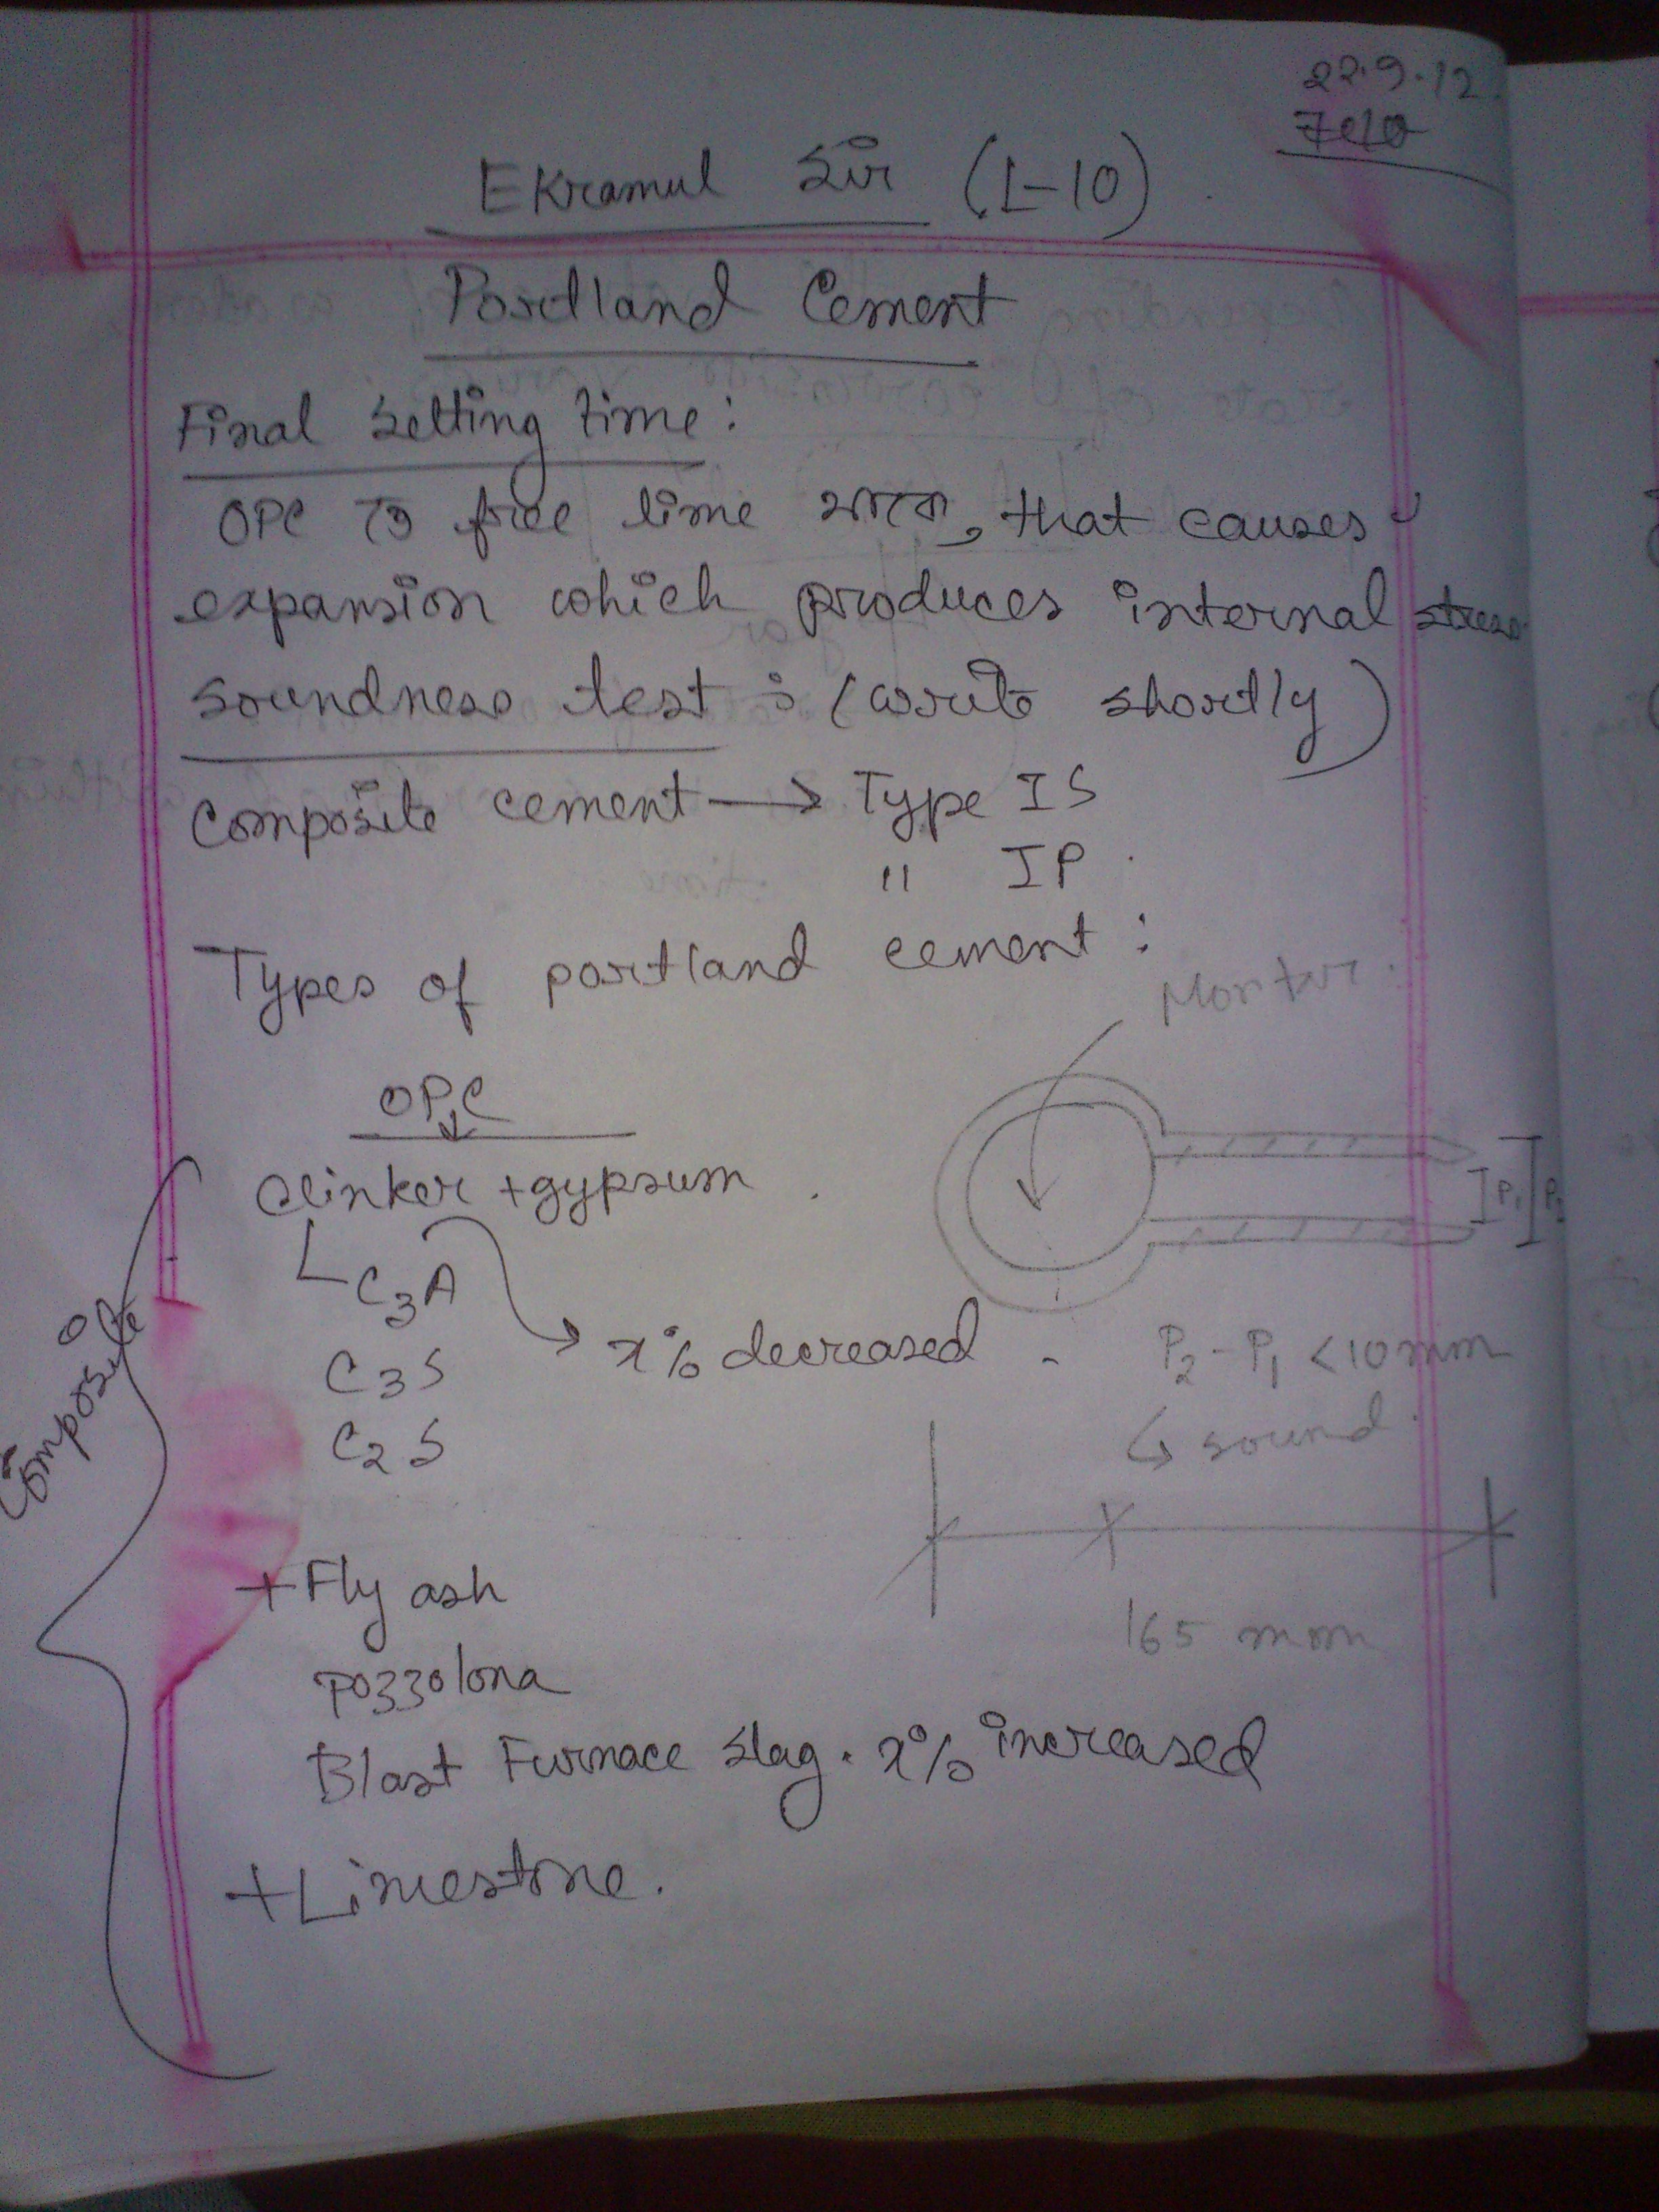 22.9.12
Ekramul Sir (L-10)
Portland Cement
Final Setting time:
OPC তে free lime থাকে, that causes
expansion which produces internal stress.
Soundness test : (write shortly)
Composite cement → Type IS
" IP
Types of portland cement :
Mortar.
OPC
Clinker + gypsum
C3A
x% decreased
C3S
C2S
P1 P2
P2 - P1 < 10 mm
↳ sound
165 mm
Composite
+ Fly ash
Pozzolona
Blast Furnace Slag. x% increased
+ Limestone.